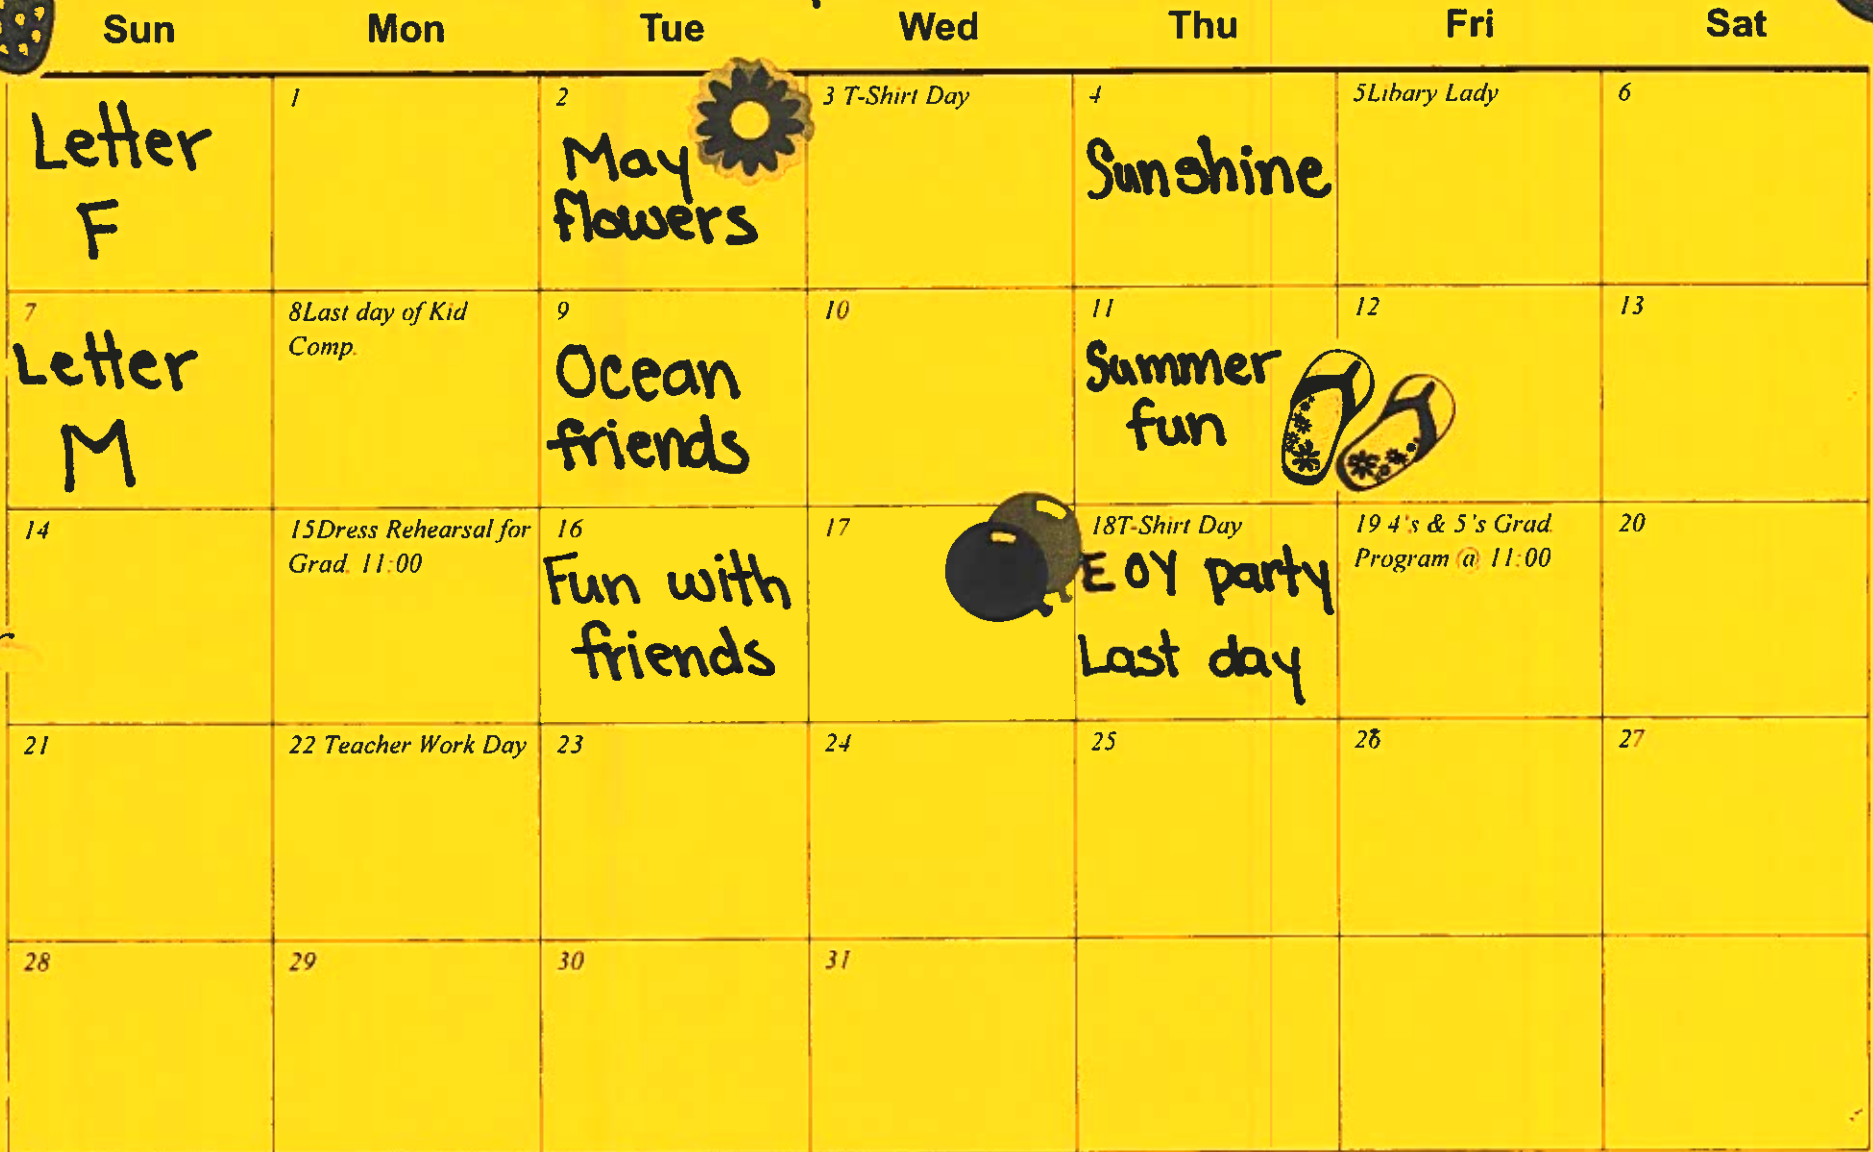 Sun Mon Tue Wed Thu Fri Sat
Letter
F
1
2
May
flowers
3 T-Shirt Day
4
Sunshine
5Libary Lady
6
7
Letter
M
8Last day of Kid
Comp.
9
Ocean
friends
10
11
Summer
fun
12
13
14
15Dress Rehearsal for
Grad. 11:00
16
Fun with
friends
17
18T-Shirt Day
EOY party
Last day
19 4's & 5's Grad.
Program @ 11:00
20
21
22 Teacher Work Day
23
24
25
26
27
28
29
30
31